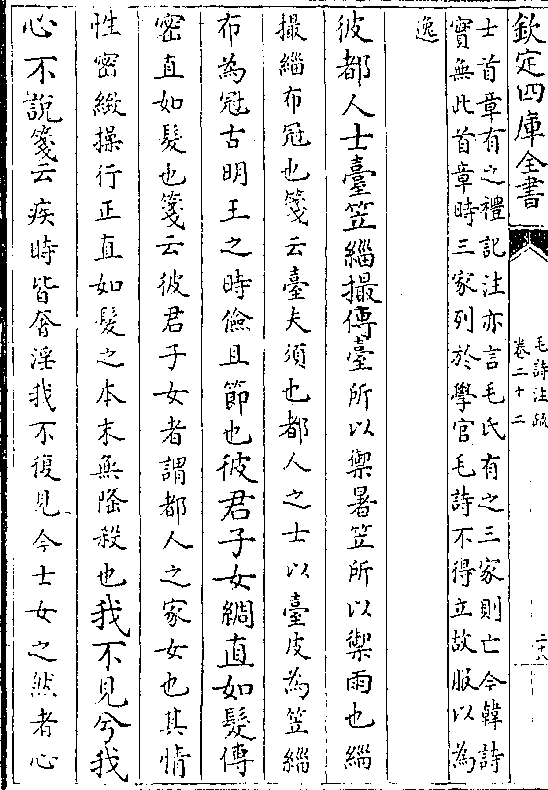 欽定四庫全書
毛詩注疏
卷二十二
二六
士首章有之禮記注亦言毛氏有之三家則亡今韓詩
實無此首章時三家列於學官毛詩不得立故服以為
逸
彼都人士臺笠緇撮傳臺所以禦暑笠所以禦雨也緇
撮緇布冠也箋云臺夫須也都人之士以臺皮為笠緇
布為冠古明王之時儉且節也彼君子女綢直如髮傳
密直如髮也箋云彼君子女者謂都人之家女也其情
性密緻操行正直如髮之本末無隆殺也我不見兮我
心不說箋云疾時皆奢淫我不復見今士女之然者心